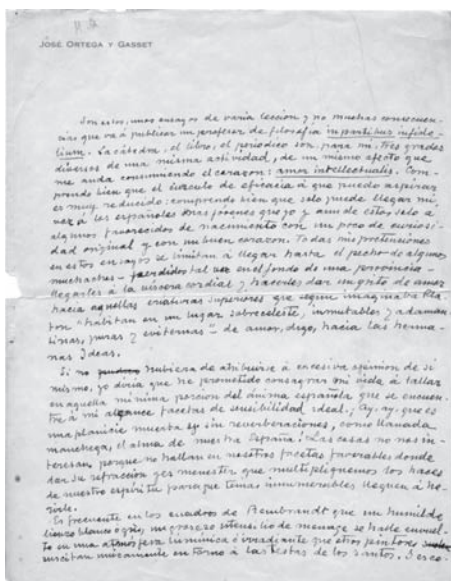 JOSÉ ORTEGA Y GASSET
Son estos, unos ensayos de varia lección y no muchas consecuen-
cias que va á publicar un profesor de filosofía in partibus infide-
lium. La cátedra, el libro, el periódico son para mí, tres grados
diversos de una misma actividad, de un mismo afecto que
me anda consumiendo el corazon: amor intellectualis. Com-
prendo bien que el círculo de eficacia á que puedo aspirar
es muy reducido: comprendo bien que solo puede llegar mi
voz á los españoles mas jóvenes que yo y aun de estos solo a
algunos favorecidos de nacimiento con un poco de curiosi-
dad original y con un buen corazon. Todas mis pretensiones
en estos ensayos se limitan á llegar hasta el pecho de algunos
muchachos - perdidos tal vez en el fondo de una provincia -
llegarles á la víscera cordial y hacerles dar un grito de amor
hacia aquellas criaturas superiores que segun imaginaba Pla-
ton "habitan en un lugar sobreceleste, inmutables y adaman-
tinas, puras y eviternas" - de amor, digo, hacia las herma-
nas Ideas.
Si no hubiera de atribuirse á excesiva opinion de sí
mismo, yo diria que he prometido consagrar mi vida á tallar
en aquella mínima porcion del ánima española que se encuen-
tre á mi alcance facetas de sensibilidad ideal. ¡Ay, ay, que es
una planicie muerta y sin reverberaciones, como llanada
manchega, el alma de nuestra España! Las cosas no nos in-
teresan, porque no hallan en nosotros facetas favorables donde
dar su refracción y es menester que multipliquemos los haces
de nuestro espíritu para que temas innumerables lleguen á he-
rirle.
Es frecuente en los cuadros de Rembrandt que un humilde
lienzo blanco ó gris, un grosero utensilio de menage se halle envuel-
to en una atmósfera lumínica é irradiante que otros pintores
suscitan únicamente en torno á las testas de los santos. Y es co-